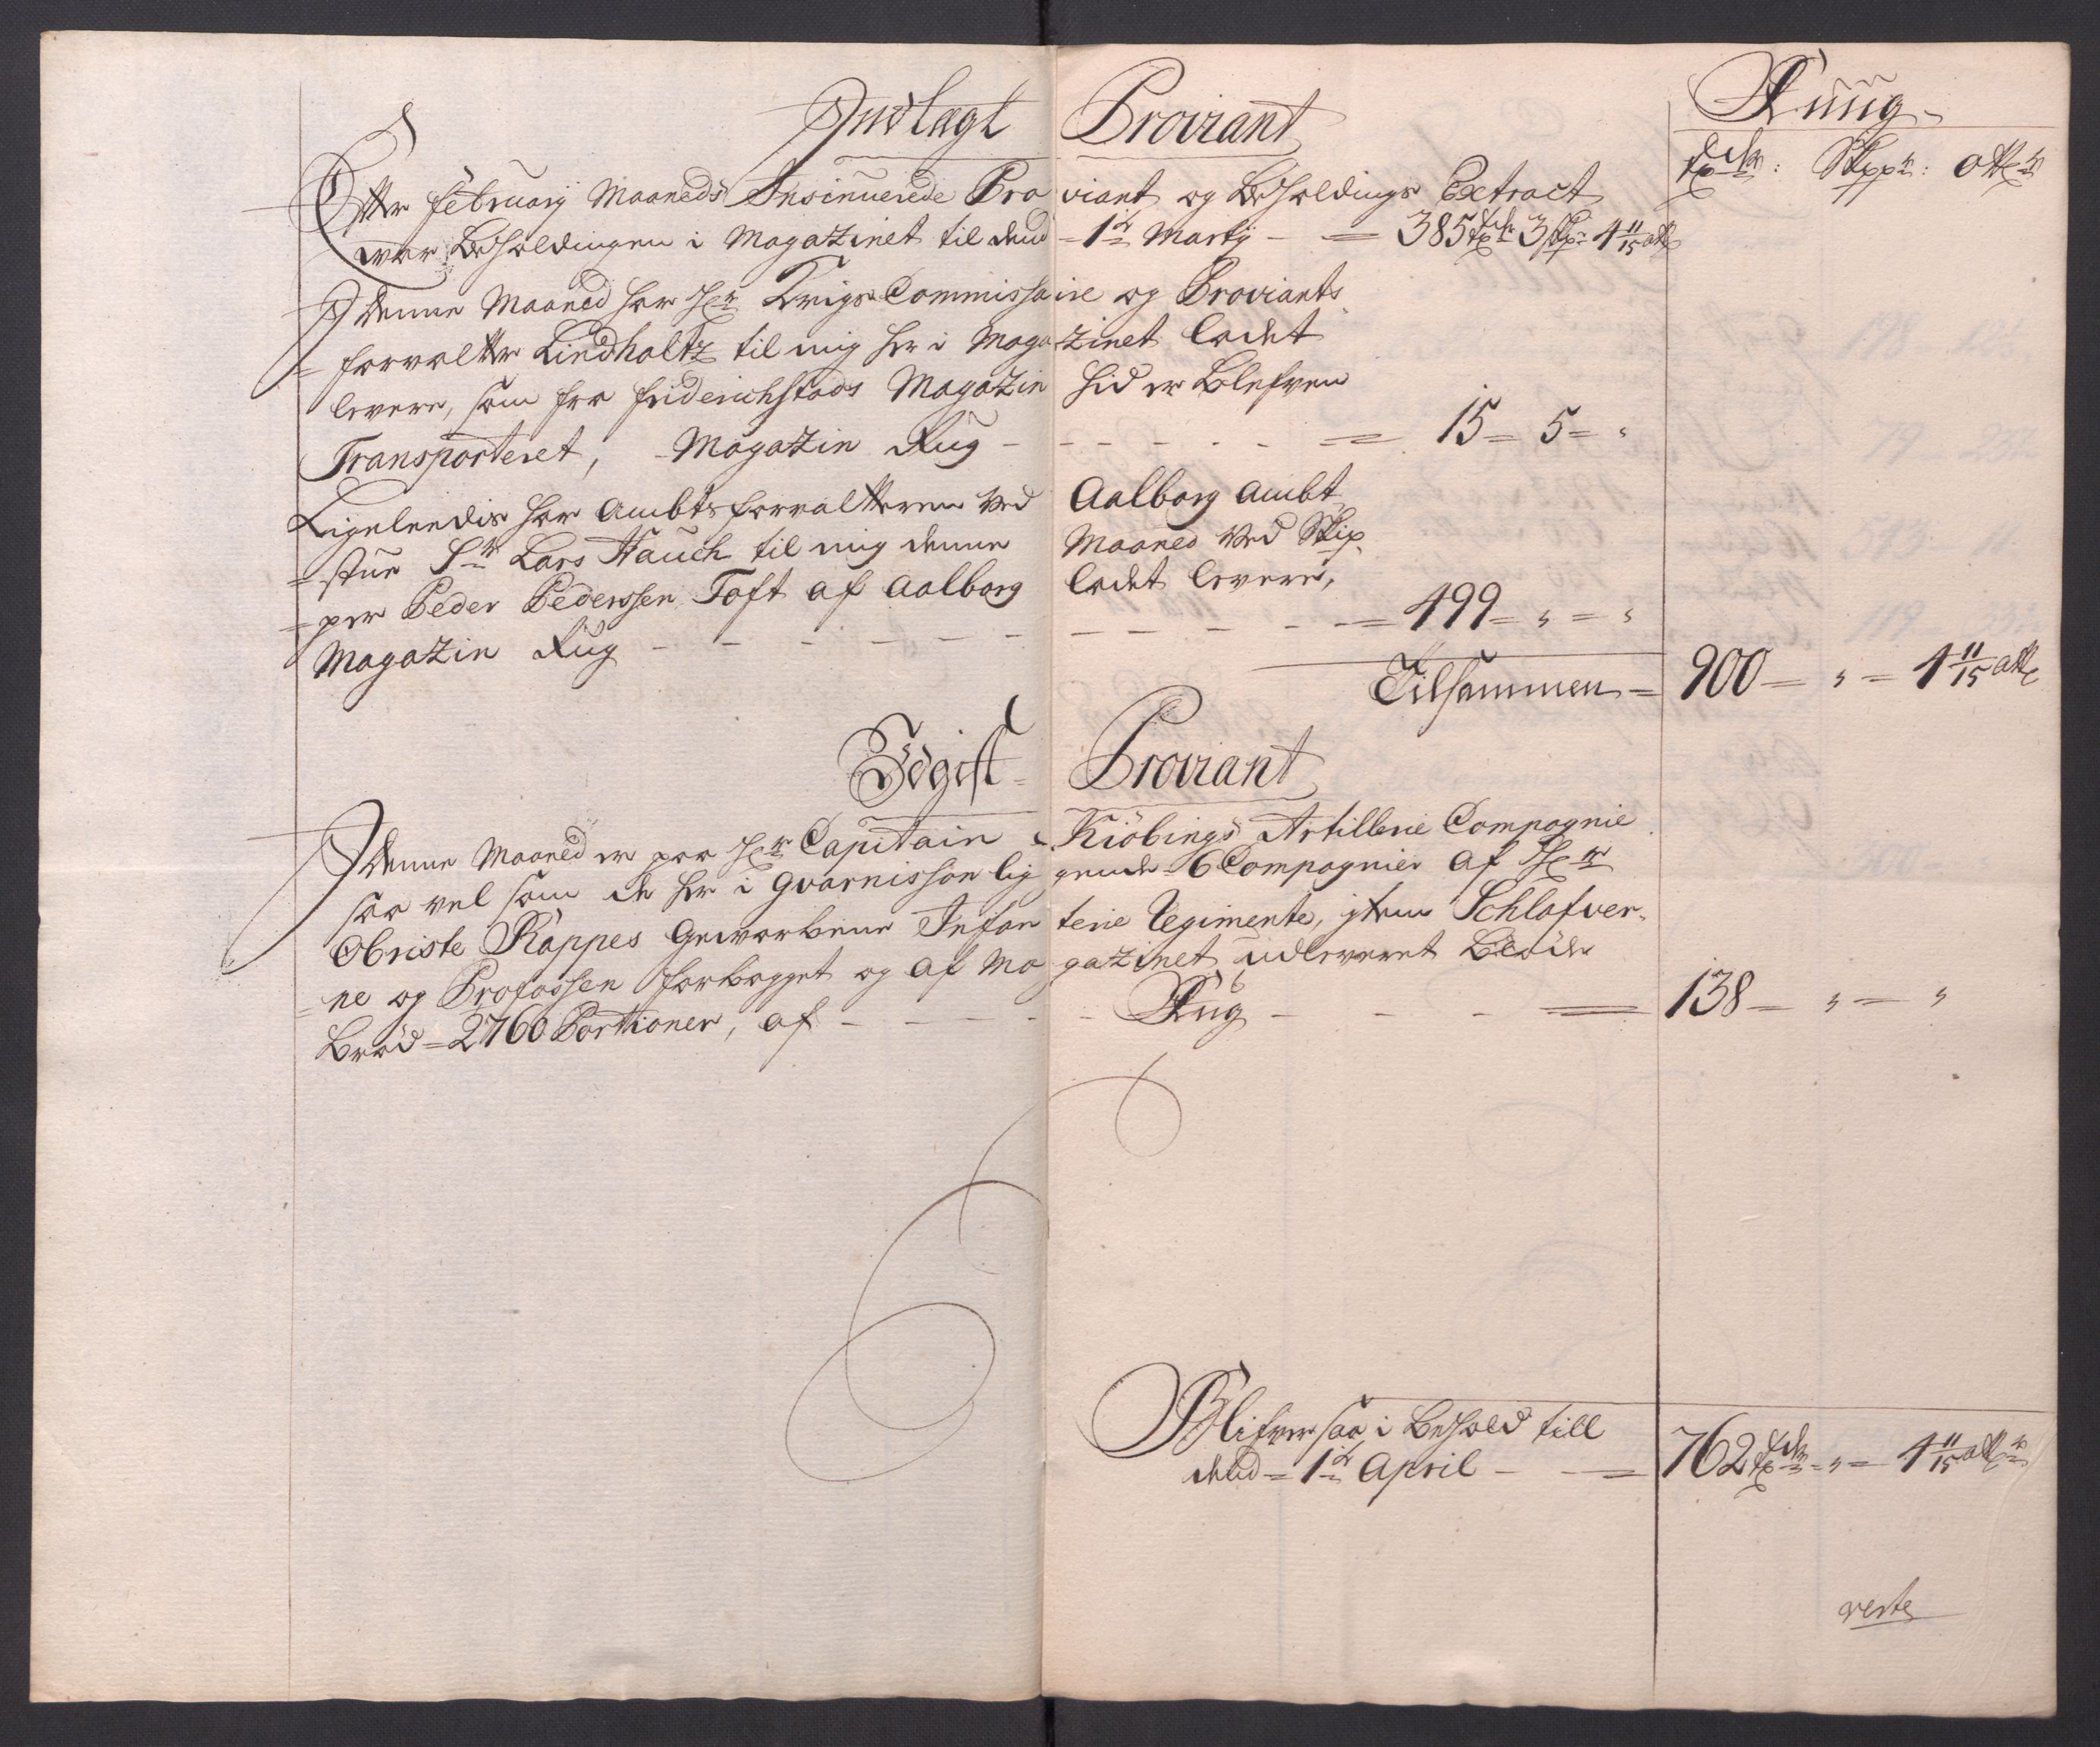 Indlagt Proviant
Rüüg
tdr: Skppr: ottr
Efter february Maaneds Insinuerede Proviant og Beholdings Extract
war Beholdingen i Magazinet til dend 1te Marty 385 tdr 3 skp 4 11/15 ott
I denne Maaned har Hr Krigs Commissaire og Proviants
forvalter Lindholtz til mig her i Magazinet ladet
levere, som fra friderichstads Magazin hid er blefven
Transporteret, Magazin Rug 15 = 5 = "
Ligeleedis har Ambtsforvalteren ved Aalborg Ambt
stue Sr Lars Hauch til mig denne Maaned ved Skip
per Peder Pederssen Toft af Aalborg ladet levere,
Magazin Rug 499 = " = "
Tilsammen = 900 = " = 4 11/15 ott
Udgift Proviant
I denne Maaned er paa Hr Capitain Kiöbings Artillerie Compagnie
saa vel som de her i Gvarnisson liggende 6 Compagnier af Hr
Obriste Kappes Geworbene Infanterie Regimente, jtem Schlafver
ne og Profossen forbagget og af Magazinet udleveret Bløde
Brød = 2760 Portioner, af Rug 138 = " = "
Blifver saa i Behold till
dend = 1te April 762 tdr = " = 4 11/15 ottr
verte